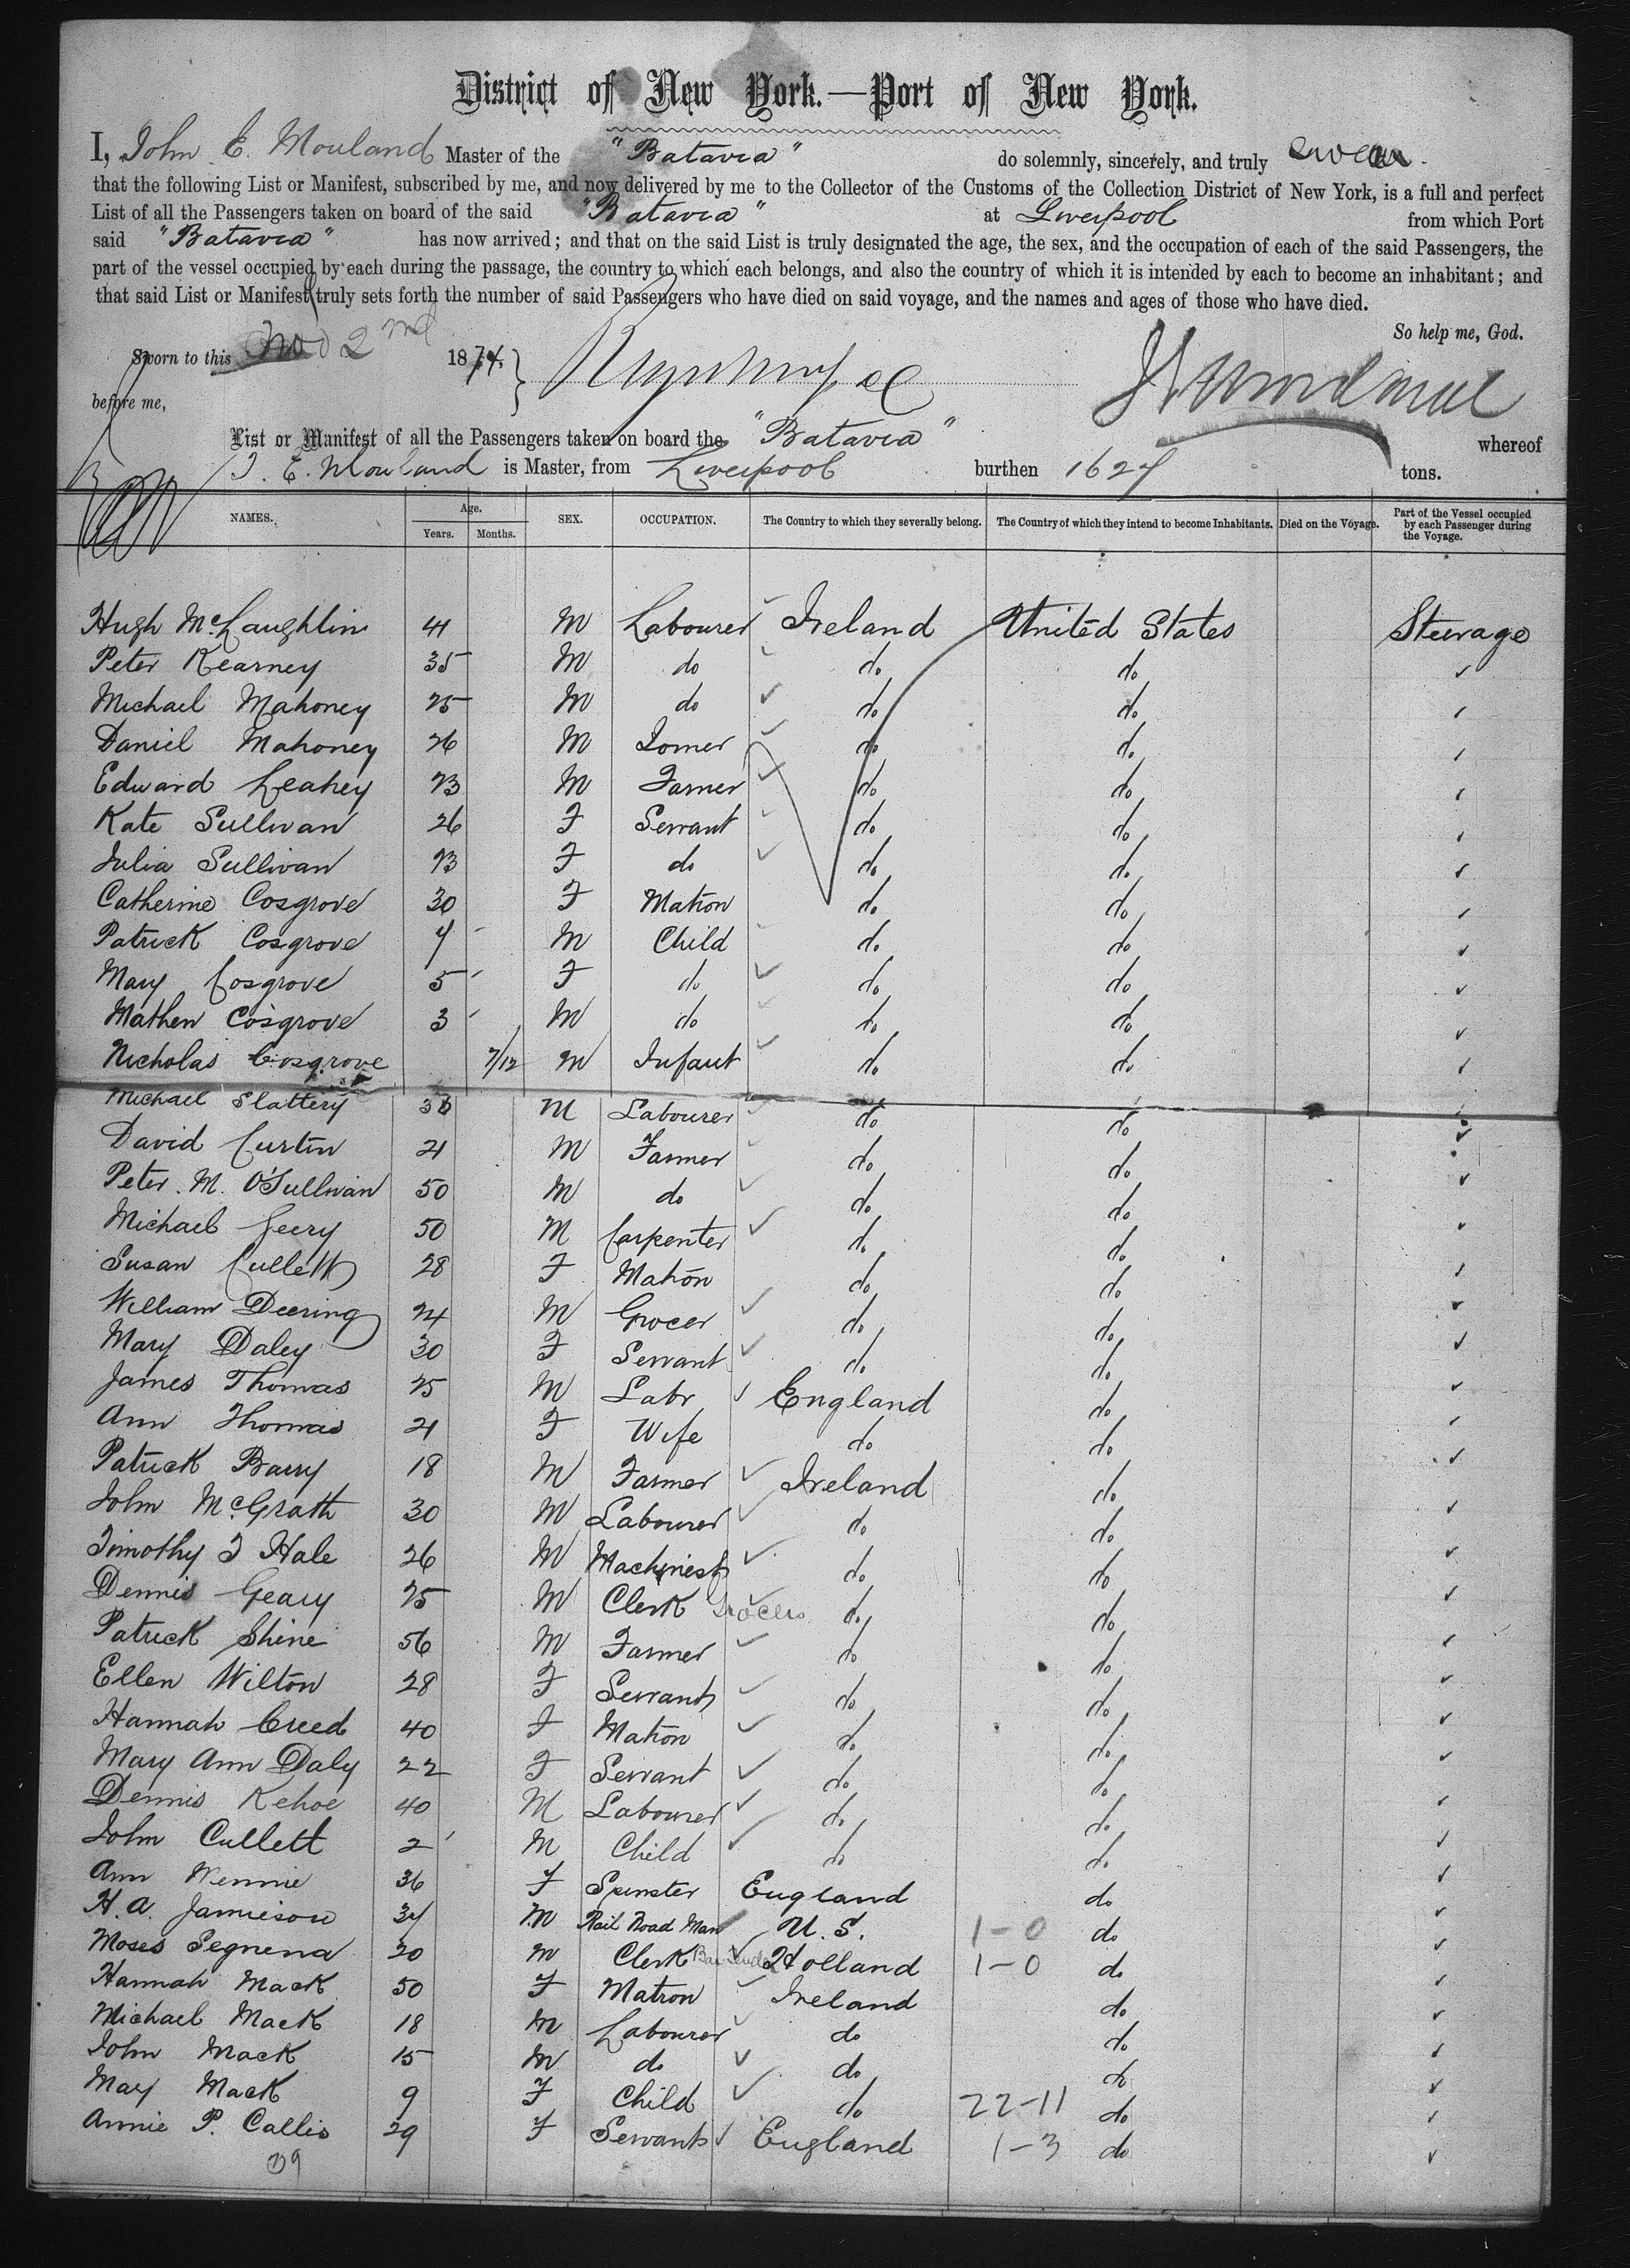 District of New York.—Port of New York.
I, John E. Mouland Master of the "Batavia" do solemnly, sincerely, and truly swear
that the following List or Manifest, subscribed by me, and now delivered by me to the Collector of the Customs of the Collection District of New York, is a full and perfect
List of all the Passengers taken on board of the said "Batavia" at Liverpool from which Port
said "Batavia" has now arrived; and that on the said List is truly designated the age, the sex, and the occupation of each of the said Passengers, the
part of the vessel occupied by each during the passage, the country to which each belongs, and also the country of which it is intended by each to become an inhabitant; and
that said List or Manifest truly sets forth the number of said Passengers who have died on said voyage, and the names and ages of those who have died.
So help me, God.
Sworn to this 2nd 1874.
before me,
List or Manifest of all the Passengers taken on board the "Batavia" whereof
J. E. Mouland is Master, from Liverpool burthen 1627 tons.
NAMES. Age. Years. Months. SEX. OCCUPATION. The Country to which they severally belong. The Country of which they intend to become Inhabitants. Died on the Voyage. Part of the Vessel occupied by each Passenger during the Voyage.
Hugh McLaughlin 41 M Labourer Ireland United States Steerage
Peter Kearney 35 M do do do
Michael Mahoney 25 M do do do
Daniel Mahoney 26 M Joiner do do
Edward Leahey 23 M Farmer do do
Kate Sullivan 26 F Servant do do
Julia Sullivan 23 F do do do
Catherine Cosgrove 30 F Matron do do
Patrick Cosgrove 7 M Child do do
Mary Cosgrove 5 F do do do
Mathew Cosgrove 3 M do do do
Nicholas Cosgrove 7/12 M Infant do do
Michael Slattery M Labourer do do
David Curtin 21 M Farmer do do
Peter. M. O'Sullivan 50 M do do do
Michael Geery 50 M Carpenter do do
Susan Cullett 28 F Matron do do
William Deering 24 M Grocer do do
Mary Daley 30 F Servant do do
James Thomas 25 M Labr England do
Ann Thomas 21 F Wife do do
Patrick Barry 18 M Farmer Ireland do
John McGrath 30 M Labourer do do
Timothy J Hale 26 M Machinest do do
Dennis Geary 25 M Clerk Grocers do do
Patrick Shine 56 M Farmer do do
Ellen Wilton 28 F Servant do do
Hannah Creed 40 F Matron do do
Mary Ann Daly 22 F Servant do do
Dennis Kehoe 40 M Labourer do do
John Cullett 2 M Child do do
Ann Wennie 36 F Spinster England do
H. A. Jamieson 34 M Rail Road Man U. S. 1-0 do
Moses Segnena 20 M Clerk Holland 1-0 do
Hannah Mack 50 F Matron Ireland do
Michael Mack 18 M Labourer do do
John Mack 15 M do do do
May Mack 9 F Child do 22-11 do
Annie P. Callis 29 F Servant England 1-3 do
39